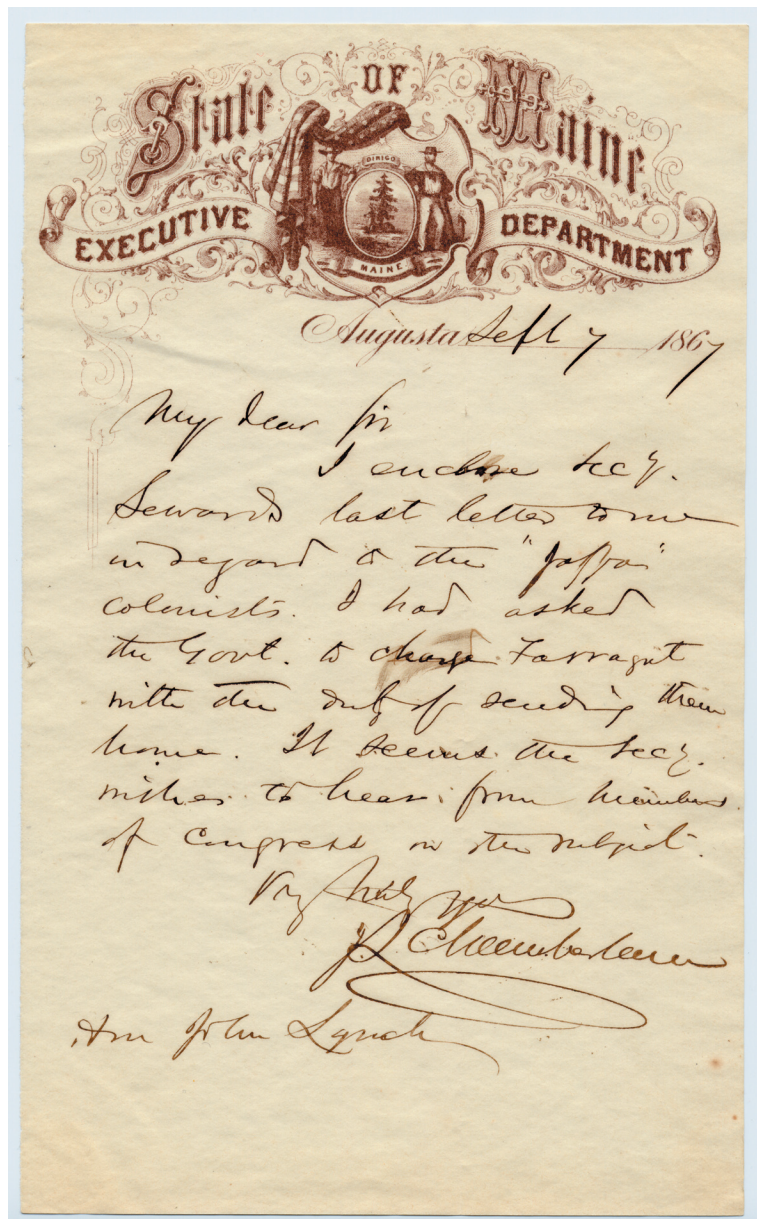 State OF Maine
DIRIGO
MAINE
EXECUTIVE DEPARTMENT
Augusta Sept 7 1867
My dear Sir
I enclose Secy.
Sewards last letter to me
in regard to the "Jaffa"
colonists. I had asked
the Govt. to charge Farragut
with the duty of sending them
home. It seems the Secy.
wishes to hear from members
of Congress on the subject.
Very truly yours
J L Chamberlain
Hon John Lynch